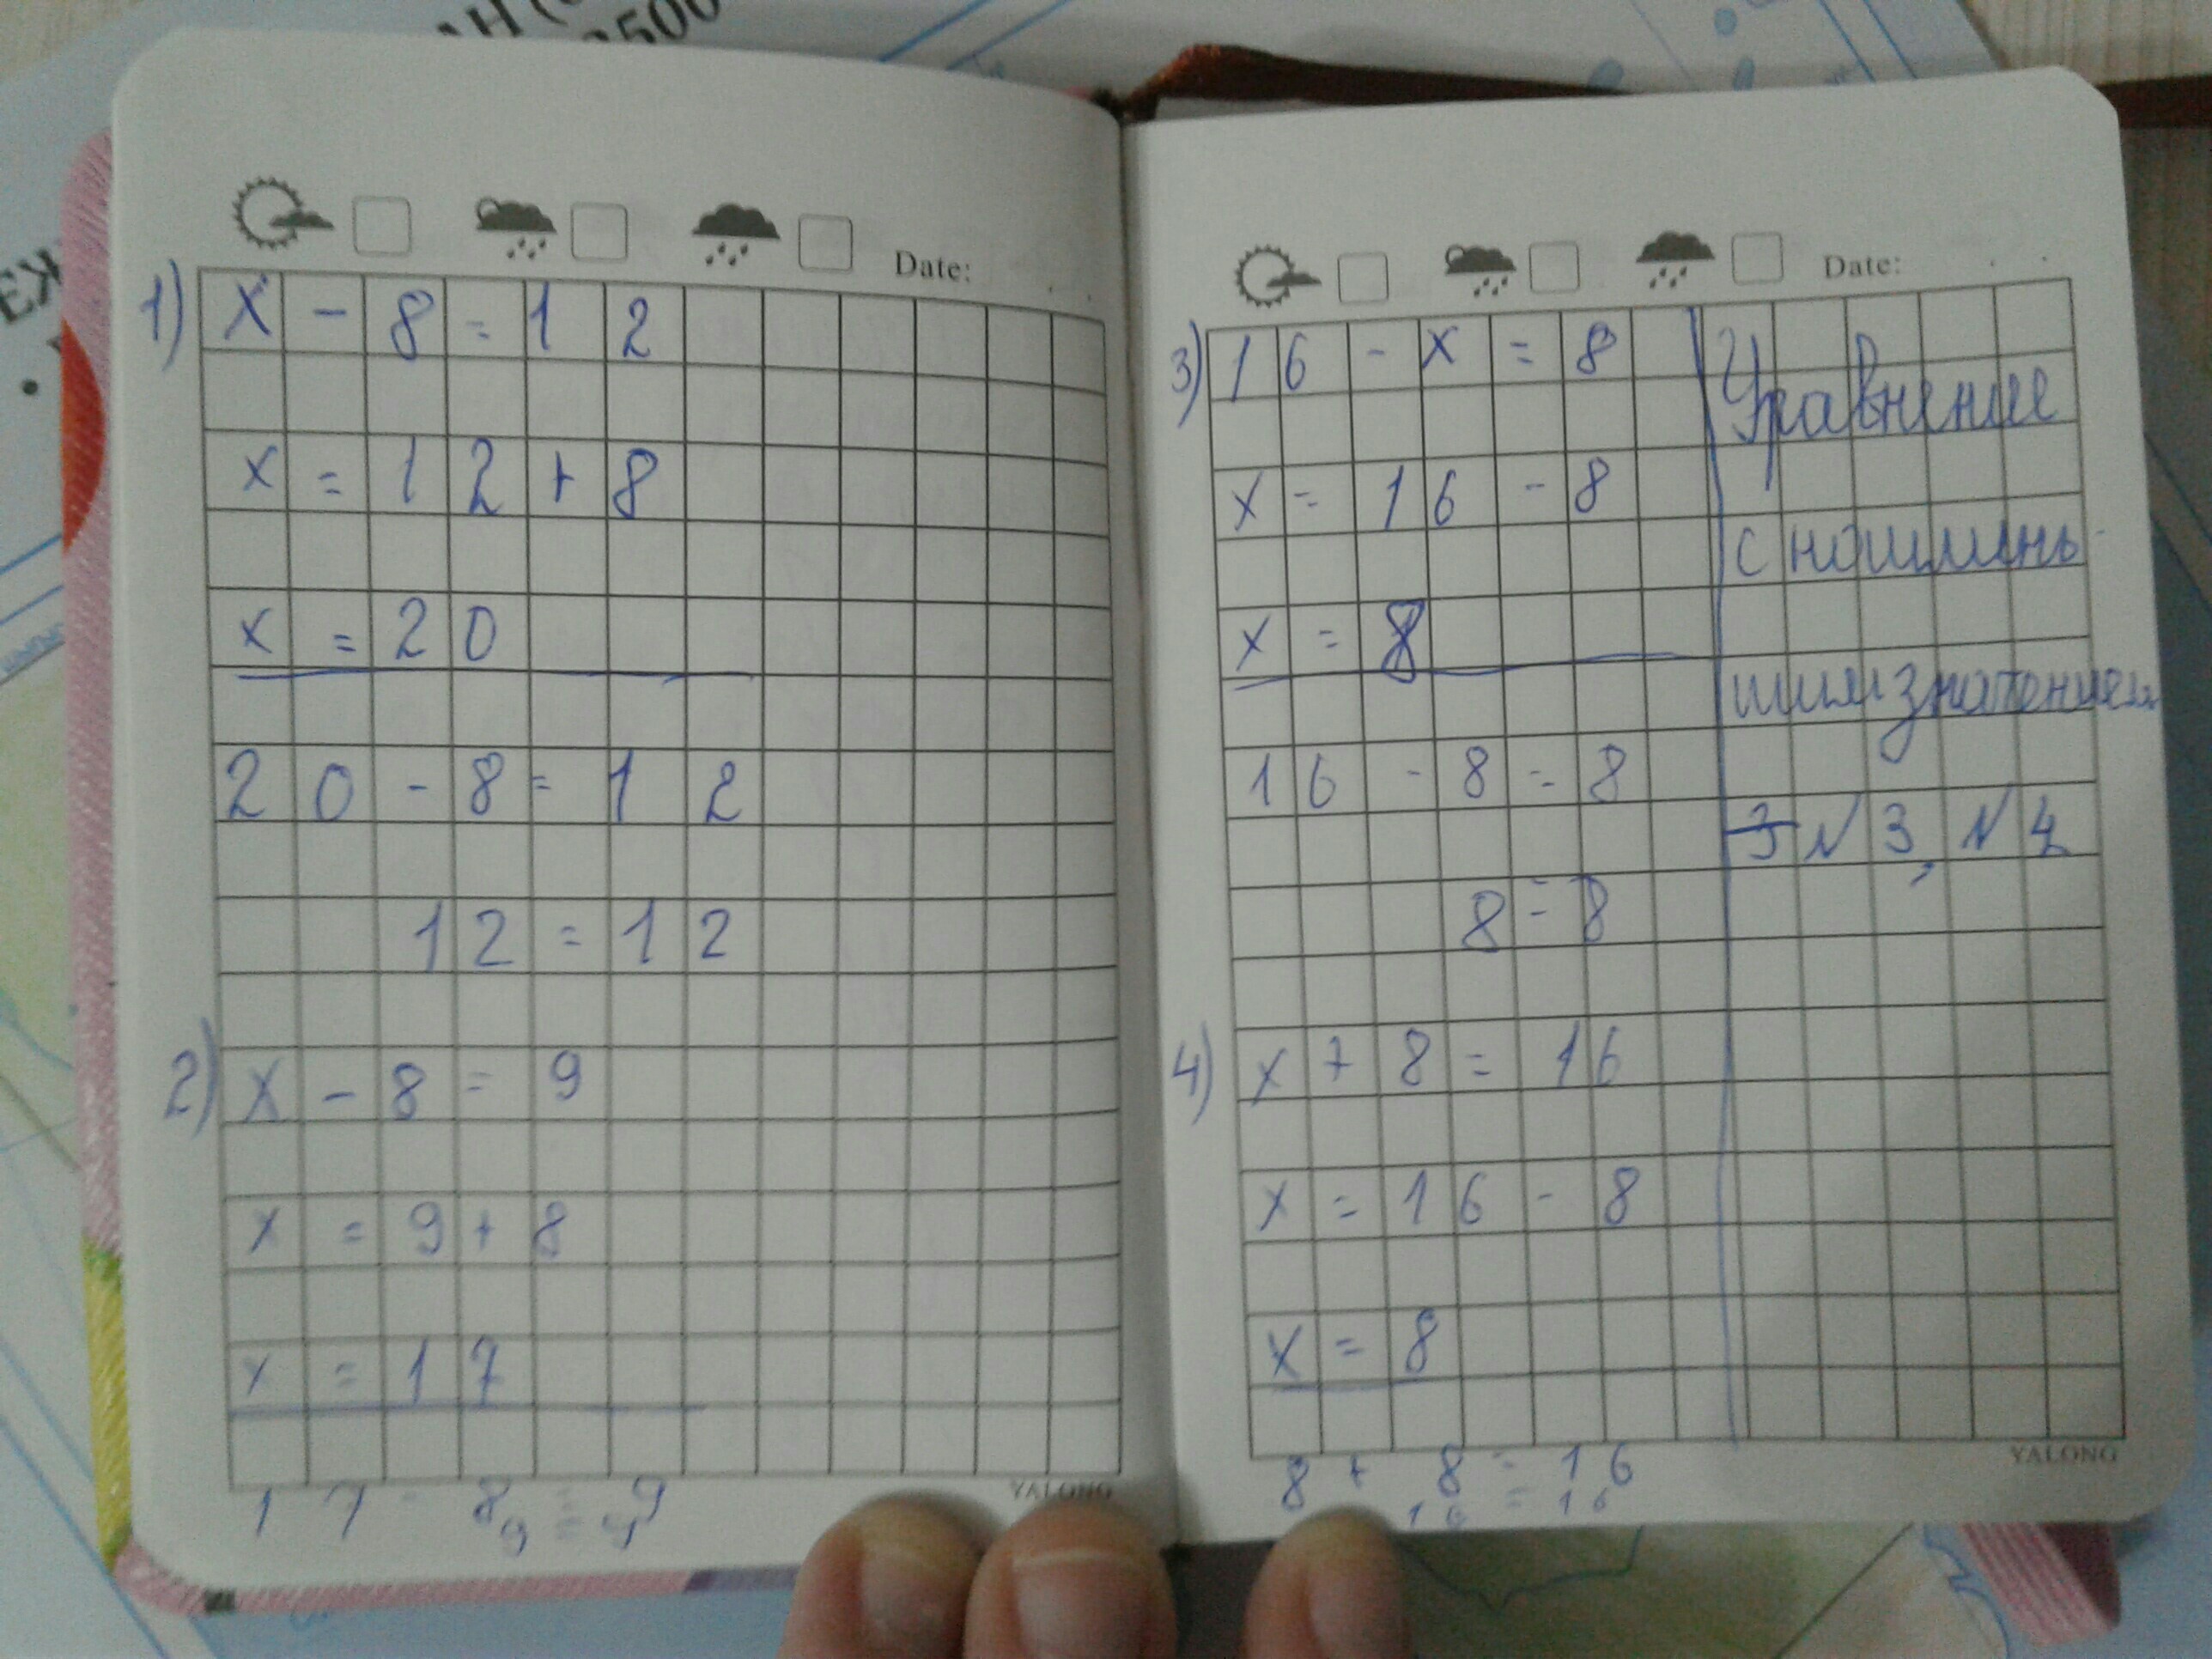 2500
Date:
1) x - 8 = 12
x = 12 + 8
x = 20
20 - 8 = 12
12 = 12
2) x - 8 = 9
x = 9 + 8
x = 17
17 - 8 = 9
9 = 9
YALONG
Date:
3) 16 - x = 8
x = 16 - 8
x = 8
16 - 8 = 8
8 = 8
4) x + 8 = 16
x = 16 - 8
x = 8
8 + 8 = 16
16 = 16
Уравнение
с наимень-
шим значением
3 N 3, N 4
YALONG